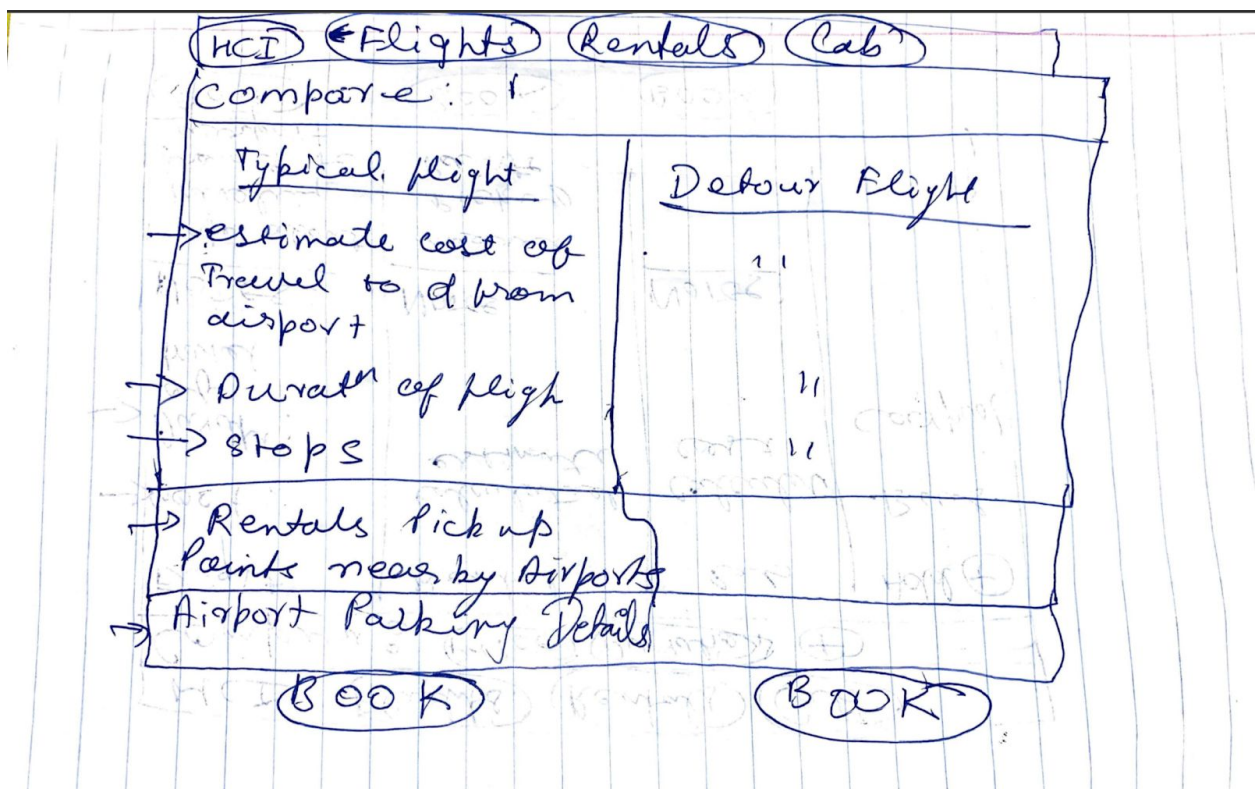 HCI Flights Rentals Cab
Compare:
Typical flight
Detour Flight
→ estimate cost of
Travel to & from
airport
"
→ Duratn of fligh
"
→ stops
"
→ Rentals Pick up
Points near by Airports
→ Airport Parking Details
BOOK
BOOK